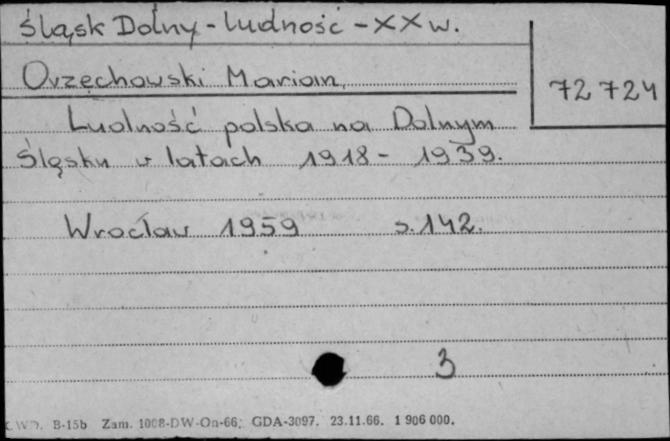 Śląsk Dolny - ludność - XX w.
Orzechowski Marian
72 724
Ludność polska na Dolnym
Śląsku w latach 1918 - 1939.
Wrocław 1959 s. 142.
3
B-15b Zam. 1008-DW-On-66, GDA-3097. 23.11.66. 1 906 000.